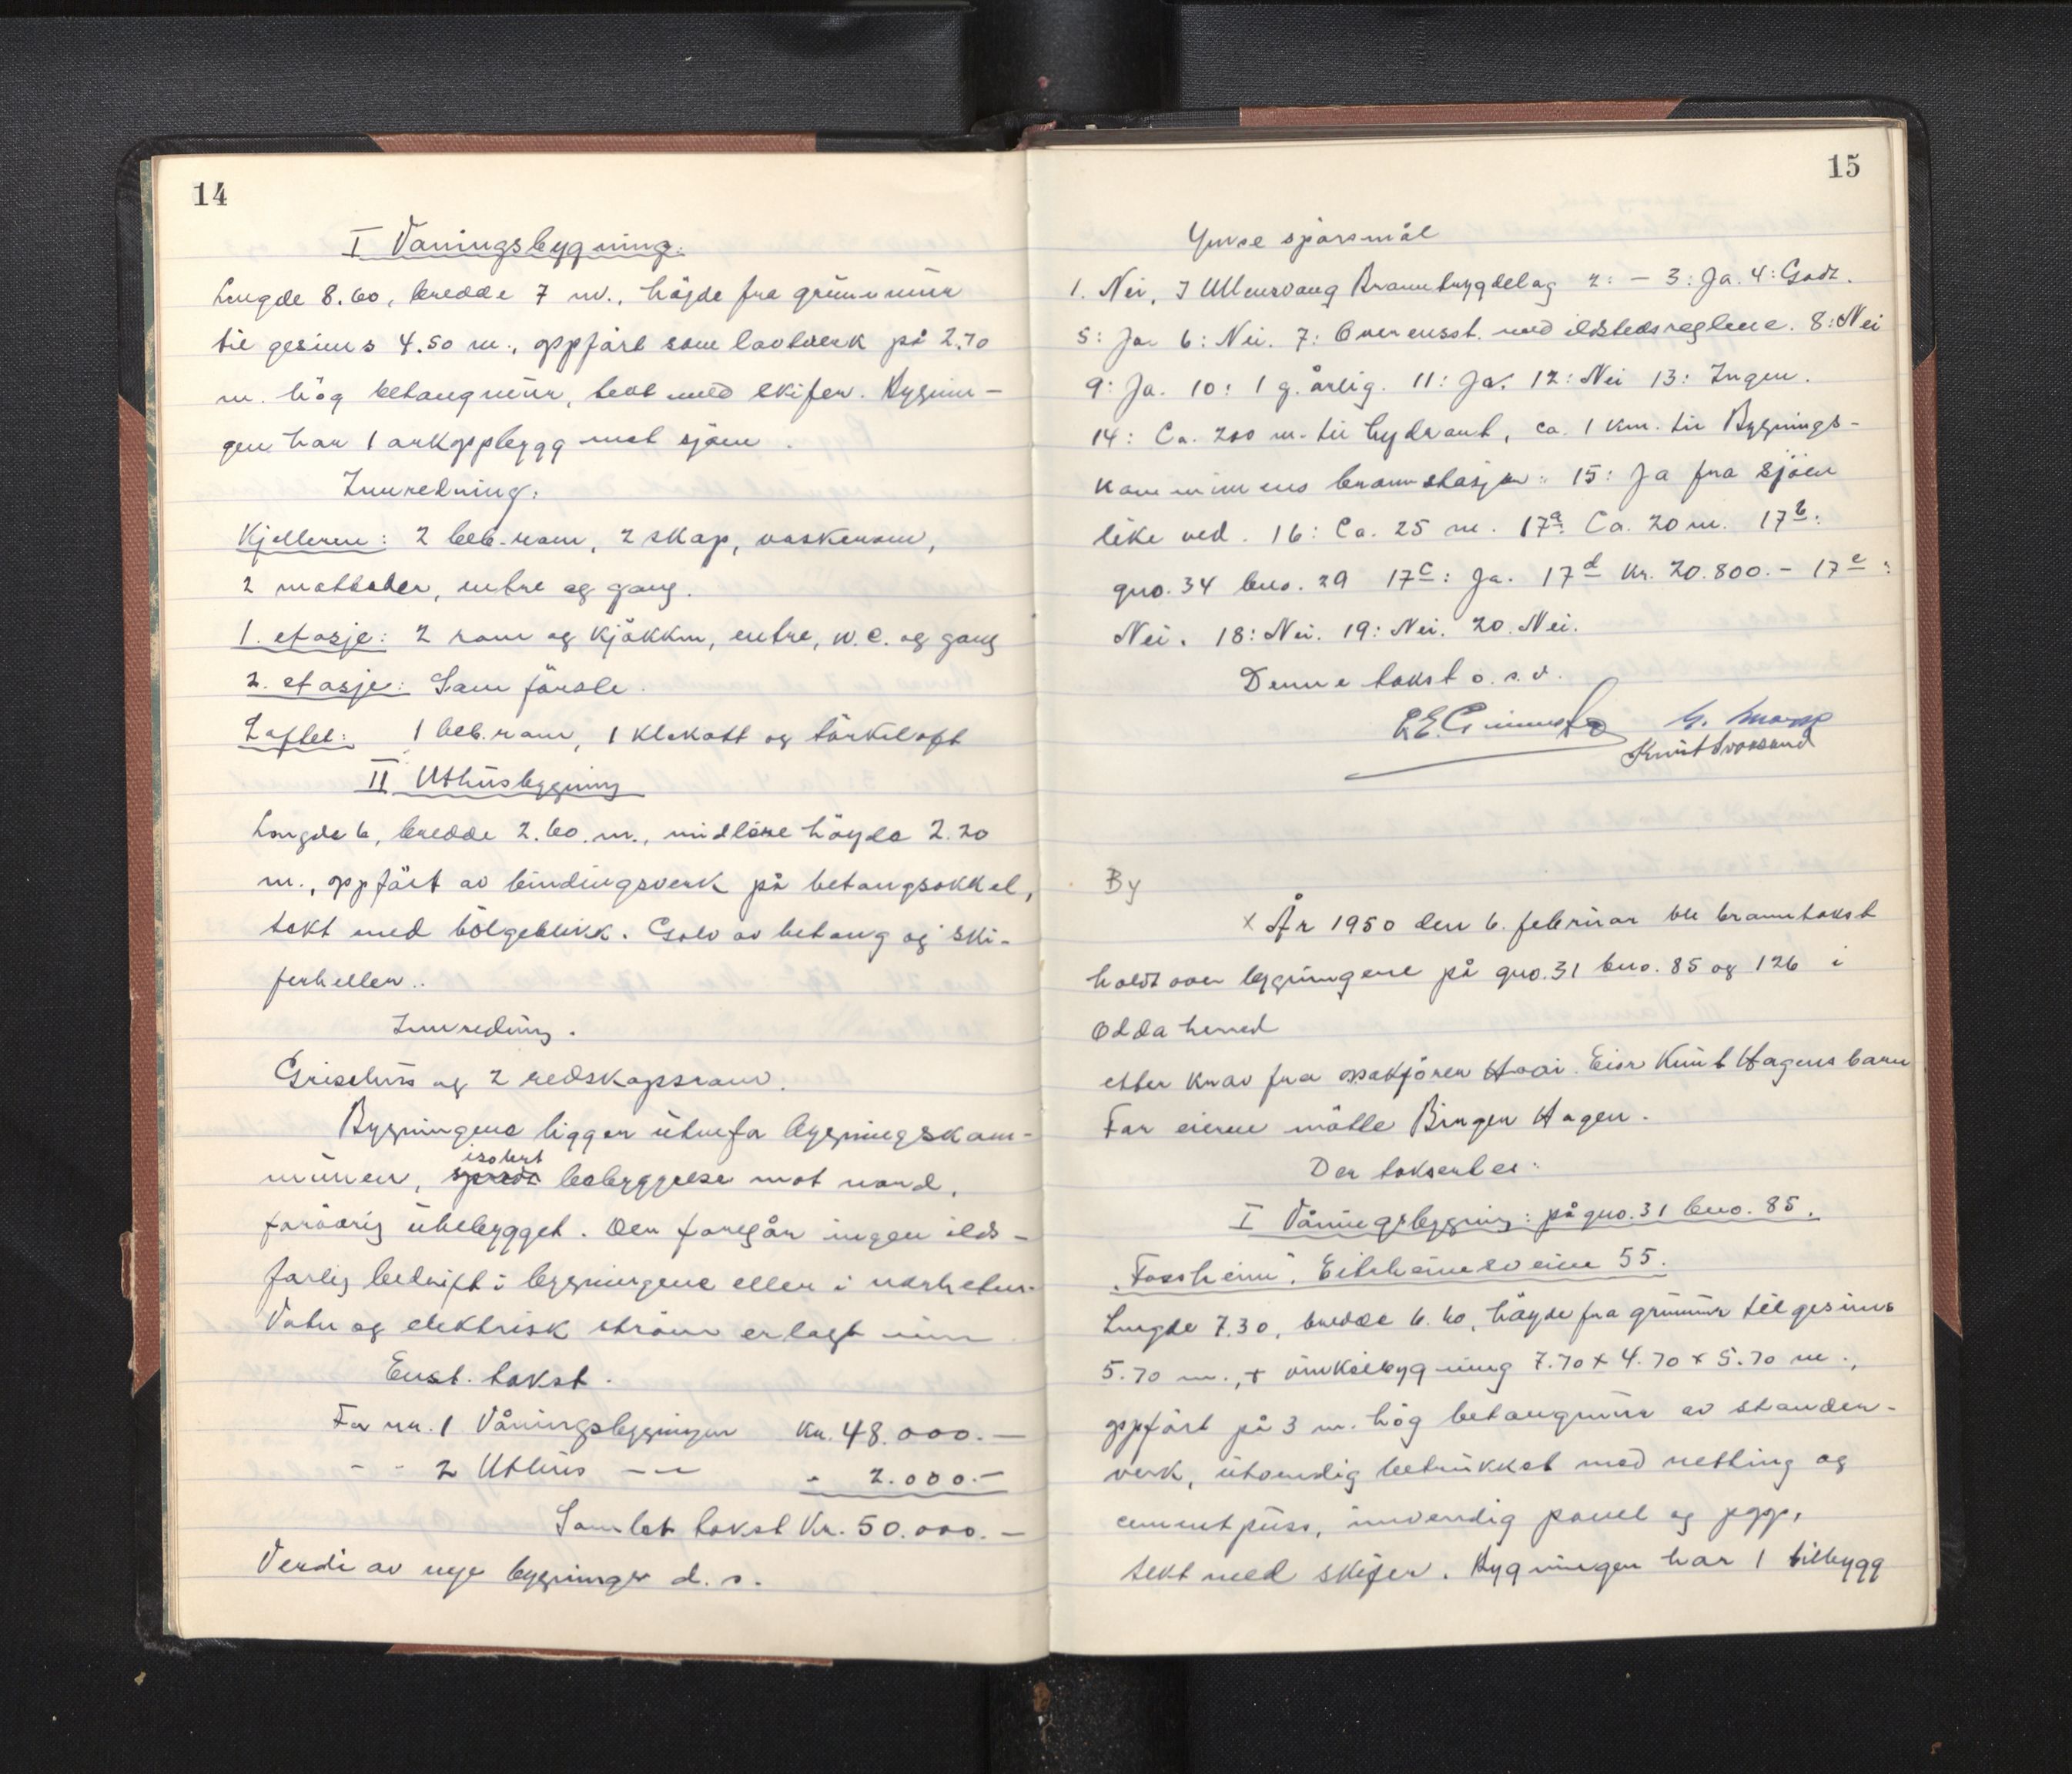 14
I Våningsbygning.
Lengde 8.60, bredde 7 m., höyde fra grunnmur
til gesims 4.50 m., oppfört som lavtverk på 2.70
m. hög betongmur, tekt med skifer. Bygnin-
gen har 1 arkoppbygg mot sjöen.
Innredning:
Kjelleren: 2 beb. rom, 2 skap, vaskerom,
2 matboder, entre og gang.
1. etasje: 2 rom og kjökken, entre, w.c. og gang
2. etasje: Som förste.
Loftet: 1 beb. rom, 1 klekott og törkeloft
II Uthusbygning
Lengde 6, bredde 2.60 m., midlere höyde 2.20
m., oppfört av bindingsverk på betongsokkel,
tekt med bölgeblikk. Golv av betong og ski-
ferheller.
Innredning.
Grisehus og 2 redskapsrom.
Bygningene ligger utenfor bygningskom-
munen, isolert bebyggelse mot nord,
forövrig ubebygget. Der foregår ingen ilds-
farlig bedrift i bygningene eller i nærheten.
Vatn og elektrisk ström er lagt inn
Enst. takst.
For nr. 1 Våningsbygningen Kr. 48.000.—
- - 2 Uthus —— - 2.000.—
Samlet takst Kr. 50.000.—
Verdi av nye bygninger d. s.
15
Ymse spörsmål
1. Nei, I Ullensvang Brannbygdelag 2: — 3: Ja. 4: Godt.
5: Ja 6: Nei. 7: Overensst. med ildstedsreglene. 8: Nei
9: Ja. 10: 1 g. årlig. 11: Ja. 12: Nei 13: Ingen.
14: Ca. 200 m. til hydrant, ca. 1 km. til Bygnings-
kommunens brannstasjon. 15: Ja fra sjöen
like ved. 16: Ca. 25 m. 17a: Ca. 20 m. 17b:
gno. 34 bno. 29 17c: Ja. 17d Kr. 20.800.- 17e:
Nei. 18: Nei. 19: Nei. 20. Nei.
Denne takst o. s. v.
By
x År 1950 den 6. februar ble branntakst
holdt over bygningene på gno. 31 bno. 85 og 126 i
Odda herred
etter krav fra Eier Knut Hagens barn
For eierne mötte Birger Hagen.
Der takseres:
I Våningsbygning: på gno. 31 bno. 85.
"Fossheim". Eitrheimsveien 55.
Lengde 7.30, bredde 6.60, höyde fra grunnmur til gesims
5.70 m., + vinkelbygning 7.70 x 4.70 x 5.70 m.,
oppfört på 3 m. hög betongmur av stender-
verk, utvendig betrukket med netting og
cementpuss, innvendig panel og papp,
tekt med skifer. Bygningen har 1 tilbygg